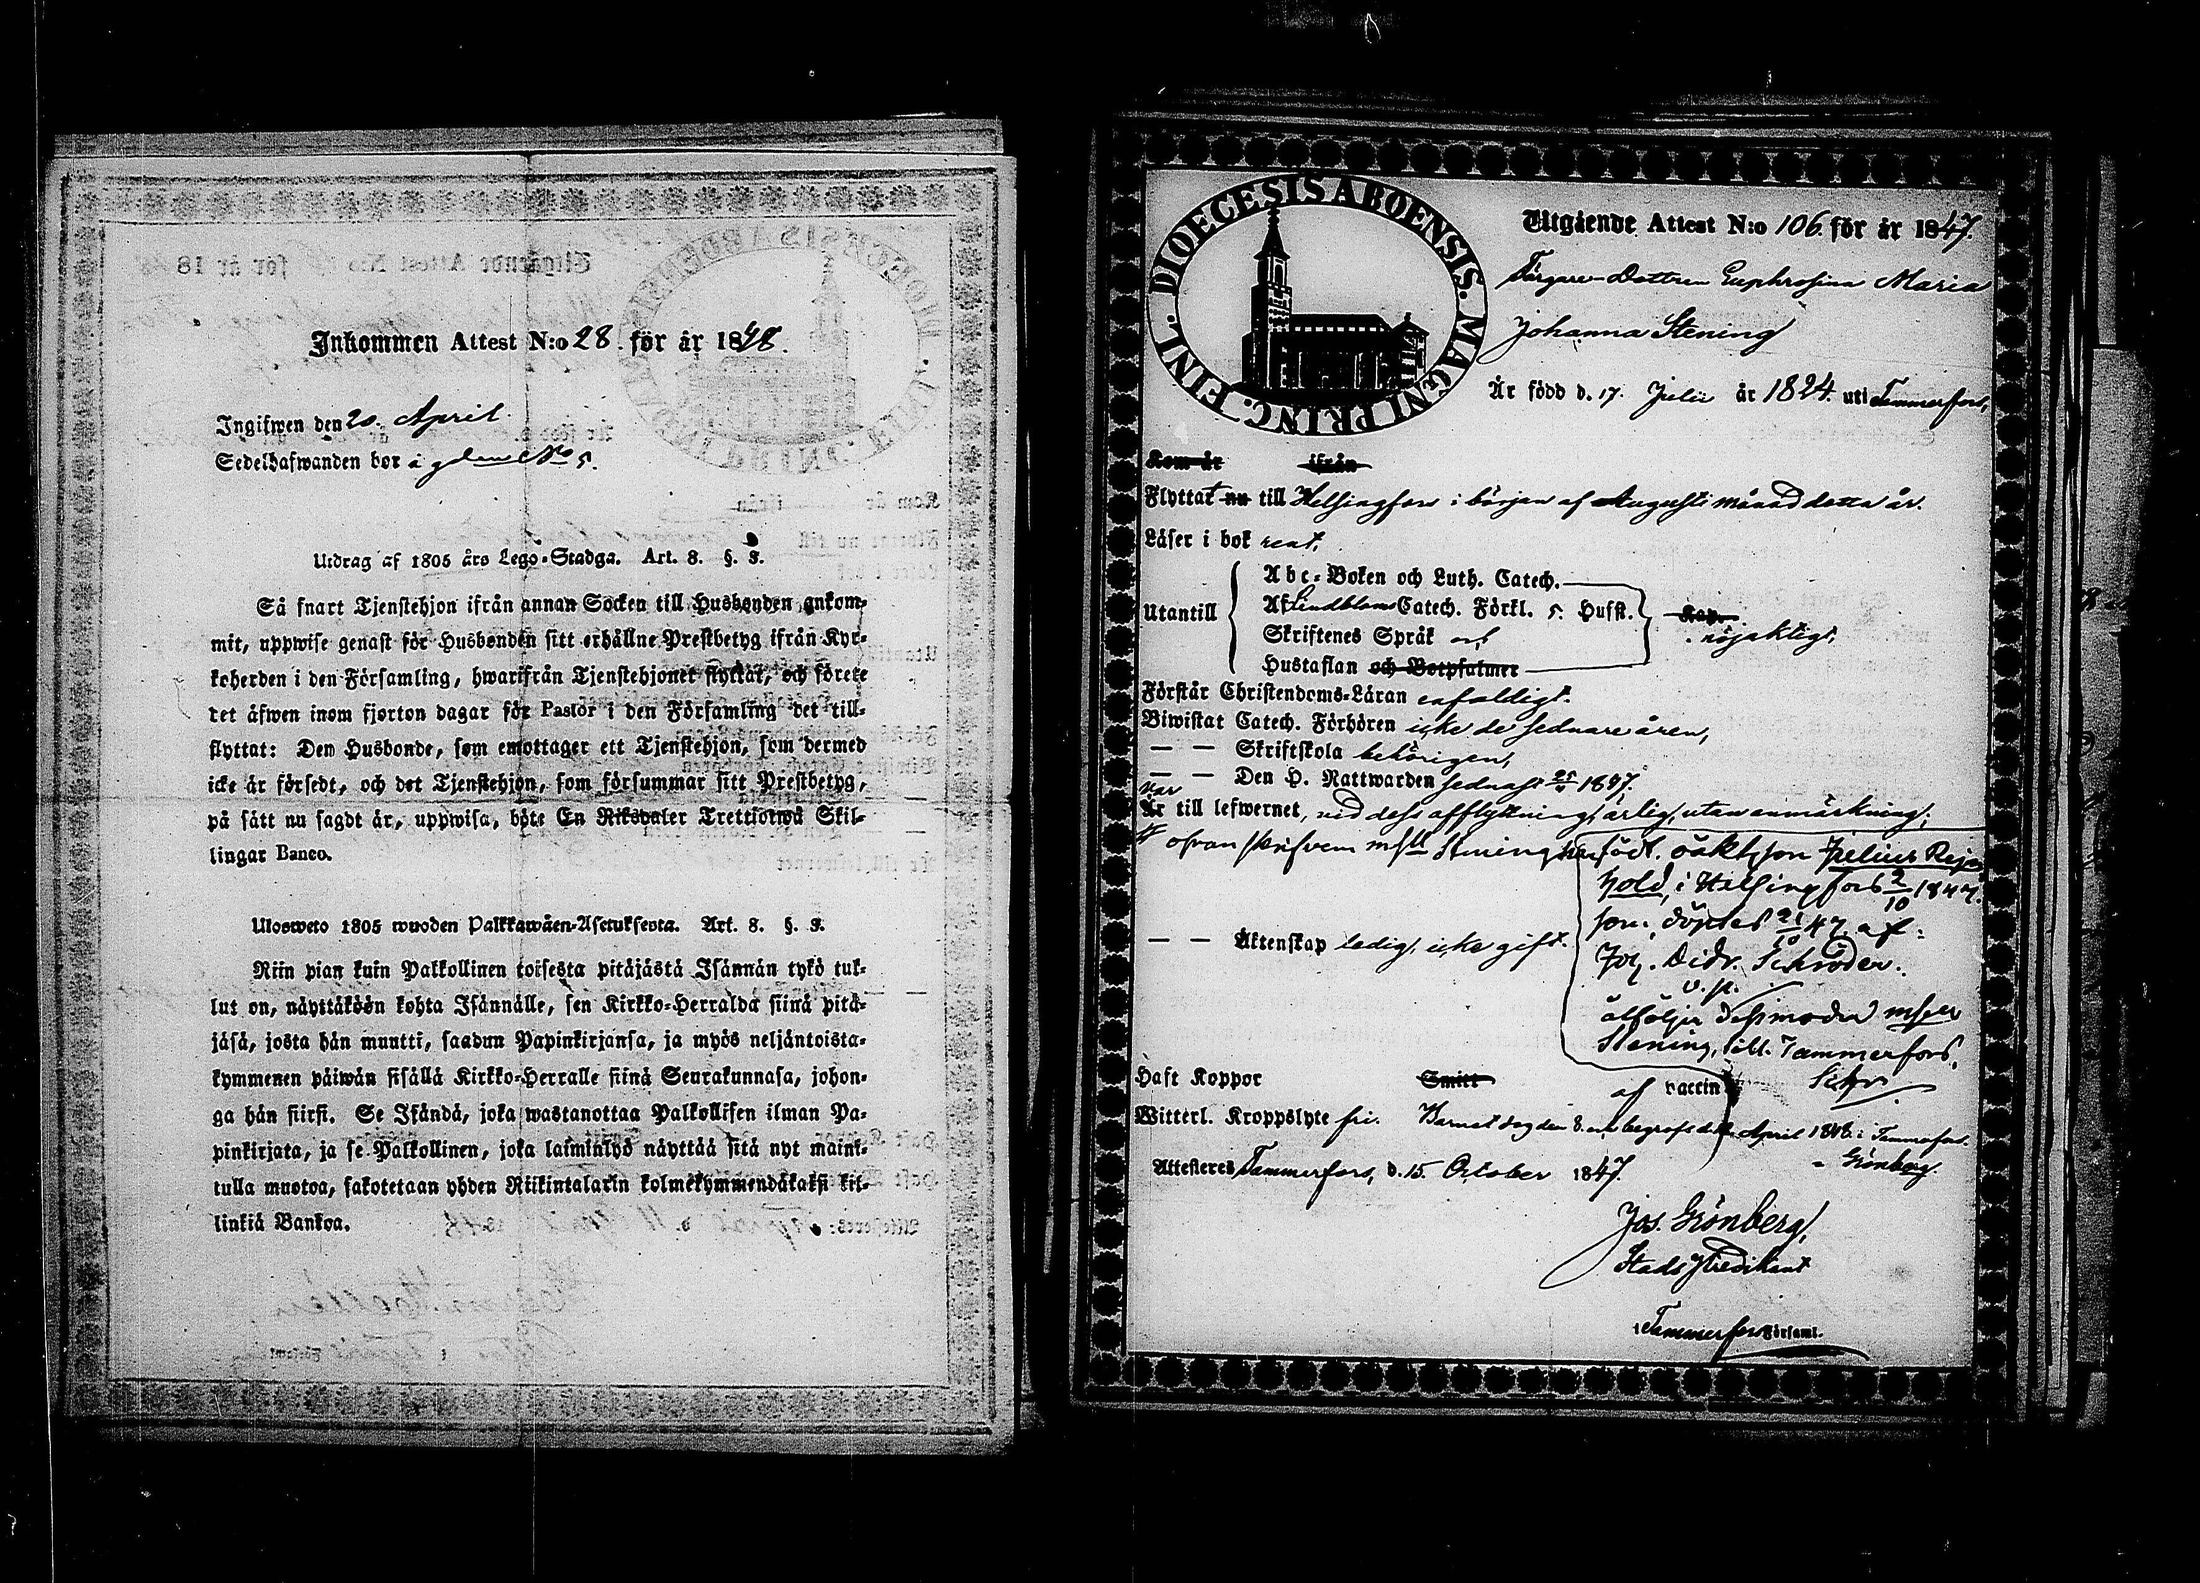 Inkommen Attest N:o 28. för år 1848.
Ingifwen den 20. April.
Sedelhafwanden bor i No 5.
Utdrag af 1805 års Lego-Stadga. Art. 8. §. 3.
Så snart Tjenstehjon ifrån annan Socken till Husbonden ankom-
mit, uppwise genast för Husbonden sitt erhållne Prestbetyg ifrån Kyr-
koherden i den Församling, hwarifrån Tjenstehjonet flyttat, och förete
det äfwen inom fjorton dagar för Pastor i den Församling det till-
flyttat: Den Husbonde, som emottager ett Tjenstehjon, som dermed
icke är försedt, och det Tjenstehjon, som försummar sitt Prestbetyg,
på sått nu sagdt är, uppwisa, böte En Riksdaler Trettiotwå Skil-
lingar Banco.
Ulosweto 1805 wuoden Palkkawäen-Asetuksesta. Art. 8. §. 3.
Niin pian kuin Palkollinen toisesta pitäjästä Isännän tykö tul-
lut on, näyttäköön kohta Isännälle, sen Kirkko-Herralda siinä pitä-
jäsä, josta hän muutti, saadun Papinkirjansa, ja myös neljäntoista-
kymmenen päiwän sisällä Kirkko-Herralle siinä Seurakunnasa, johon-
ga hän siirsi. Se Isändä, joka wastanottaa Palkollisen ilman Pa-
pinkirjata, ja se Palkollinen, joka laiminlyö näyttää sitä nyt maini-
tulla muotoa, sakotetaan yhden Riikintalarin kolmekymmendäkaksi kil-
linkiä Bankoa.
DIOECESIS ABOENSIS. MAGNI PRINC. FINL.
Utgående Attest N:o 106. för år 1847.
Färgare-Dottren Euphrosina Maria
Johanna Stening
Är född d. 17. Julii år 1824. uti Tammerfors,
Kom år ifrån
Flyttat nu till Helsingfors i början af Augusti månad detta år.
Läser i bok rent,
Abc-Boken och Luth. Catech.
Utantill Af Lindbloms Catech. Förkl. 5. Hufst. Kap.
Skriftenes Språk och nöjaktigt,
Hustaflan och Botpsalmer
Förstår Christendoms-Läran enfaldigt.
Biwistat Catech. Förhören icke de sednare åren,
— — Skriftskola behörigen,
— — Den H. Nattwarden sednast 25 1847.
var
Är till lefwernet, vid dess afflyttning, ärlig, utan anmärkning;
ofvanskrifven mslle Stening har födt. oäkt. son Julius Rejn-
hold, i Helsingfors 2/10 1847.
som döptes 21/10 47 af:
Joh. Didr. Schröder.
v. p.
åtföljer dess moder mslle
Stening, till Tammerfors.
Schr
— — Äktenskap ledig, icke gift.
Haft Koppor Smitt af vaccin
Witterl. Kroppslyte fri. Barnet dog den 8. och begrofs d. April 1848 i Tammerfors.
Grönberg.
Attesteres Tammerfors, d. 15. October 1847.
Jos. Grönberg,
Stads Predikant
i Tammerfors Församl.